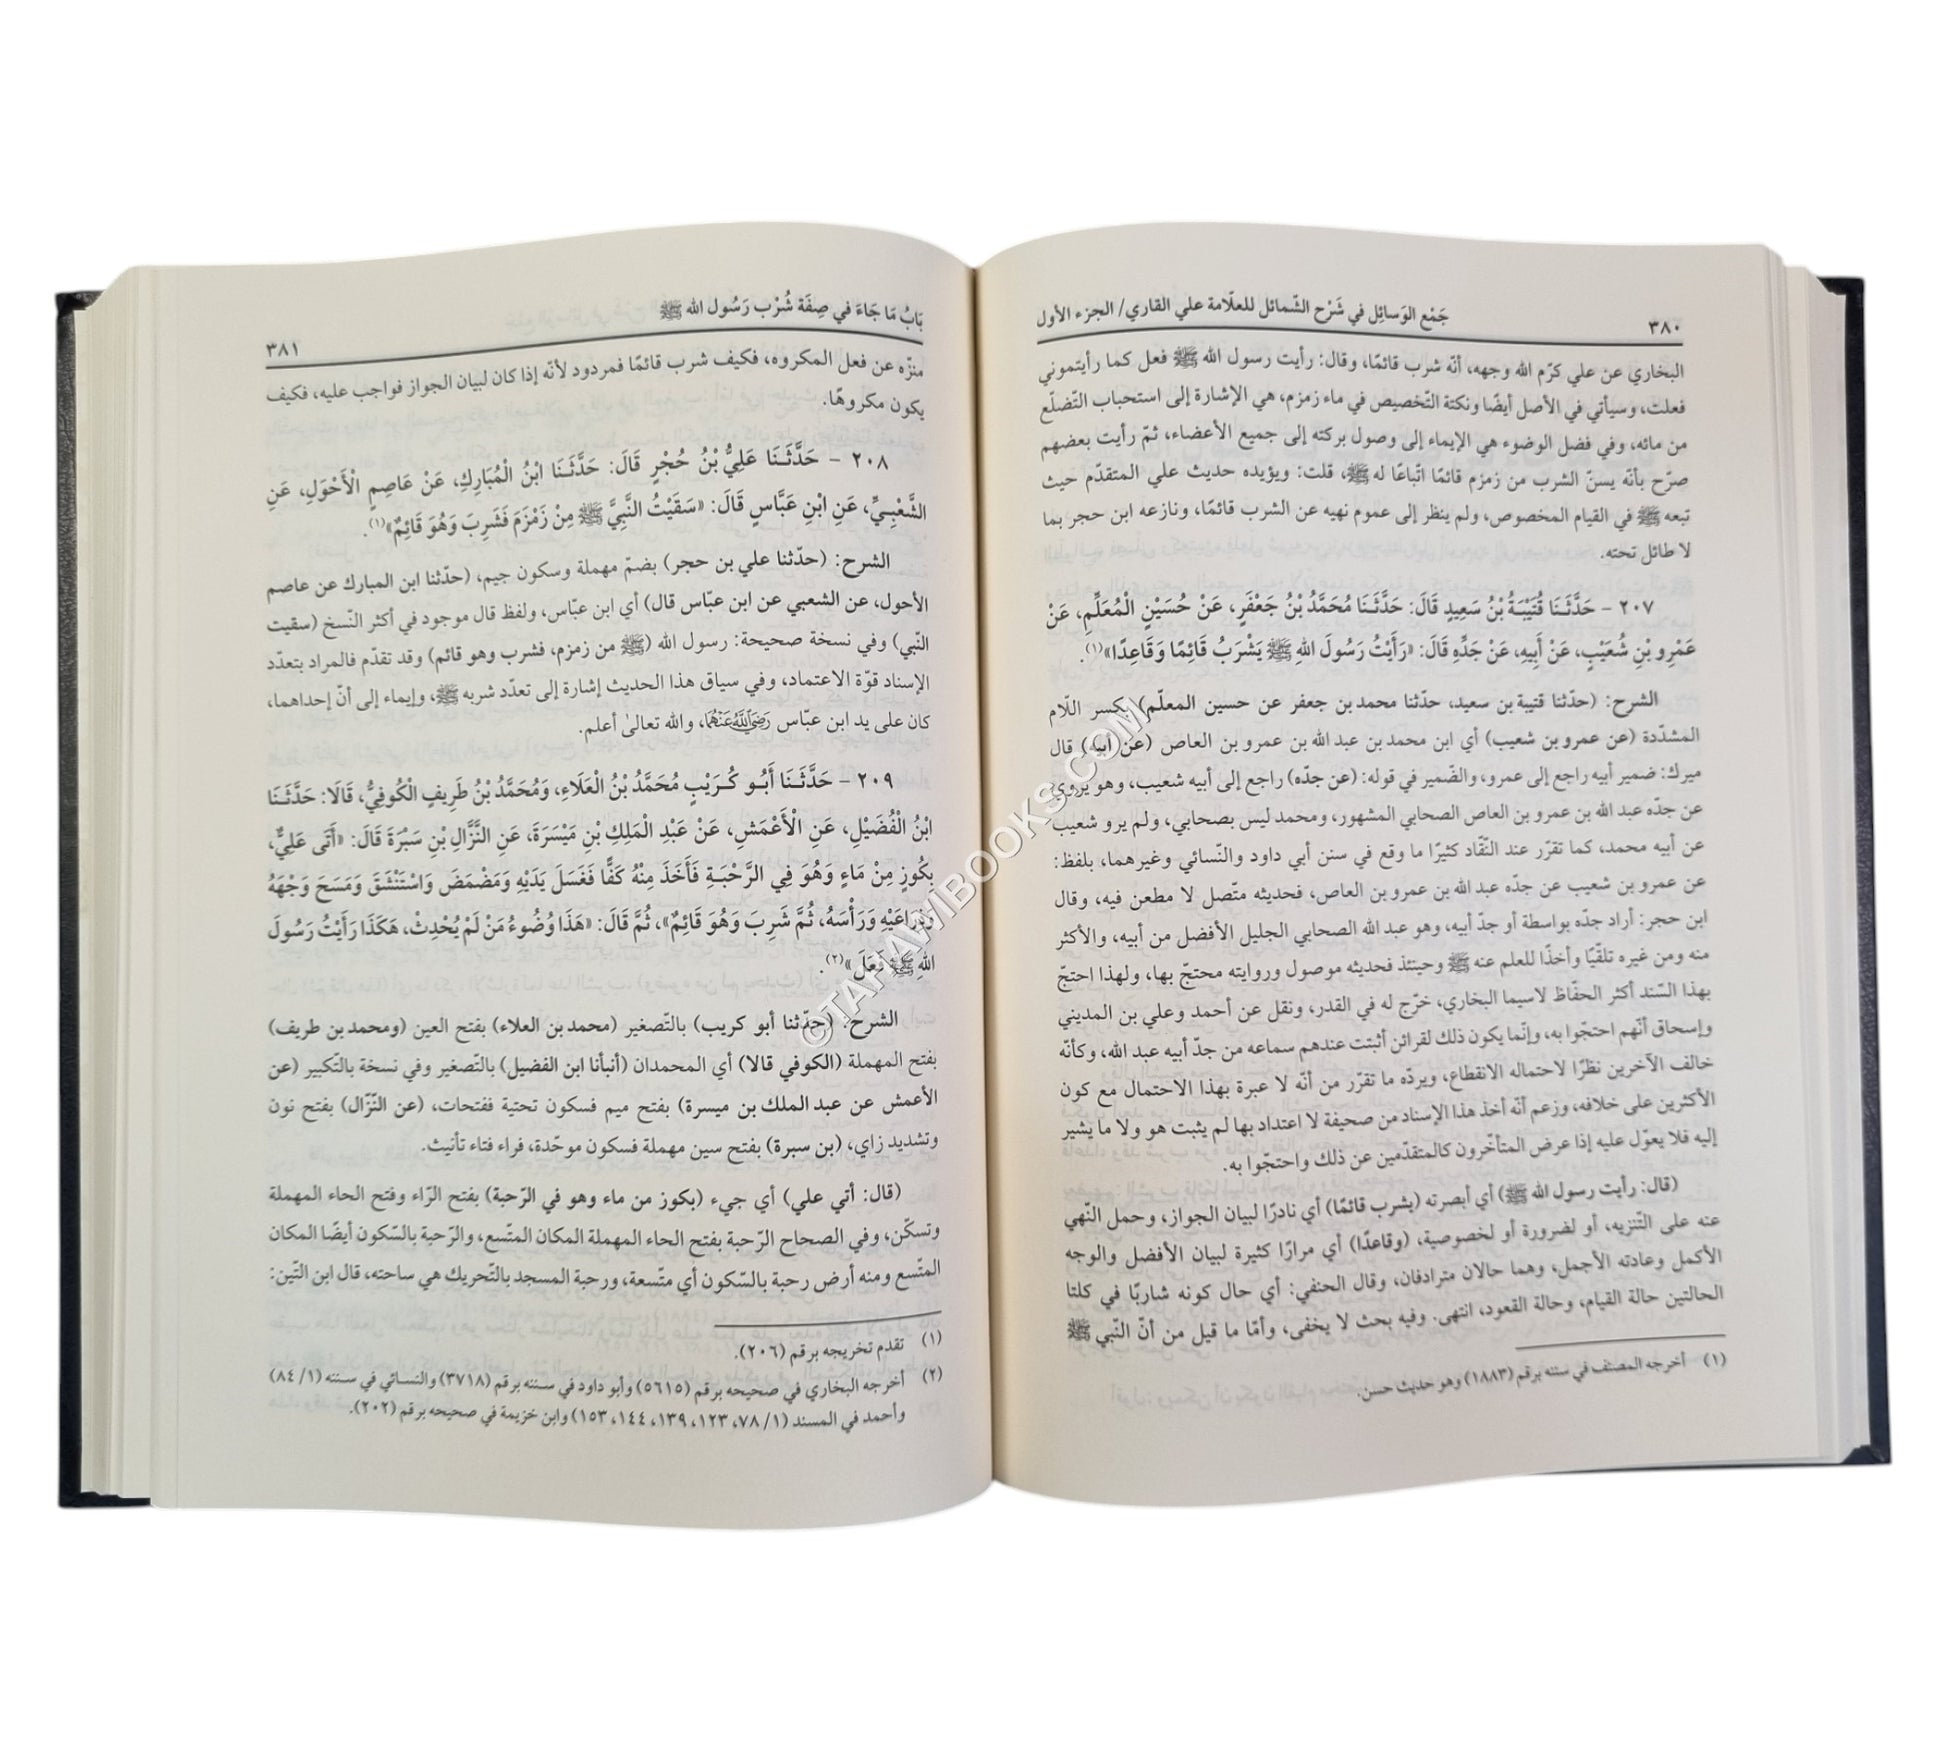 ٣٨٠
جَمْع الوَسائِل في شَرْح الشّمائل للعلّامة علي القاري/ الجزء الأول
البخاري عن علي كرّم الله وجهه، أنّه شرب قائمًا، وقال: رأيت رسول الله ﷺ فعل كما رأيتموني
فعلت، وسيأتي في الأصل أيضًا ونكتة التّخصيص في ماء زمزم، هي الإشارة إلى استحباب التّضلّع
من مائه، وفي فضل الوضوء هي الإيماء إلى وصول بركته إلى جميع الأعضاء، ثمّ رأيت بعضهم
صرّح بأنّه يسنّ الشرب من زمزم قائمًا اتّباعًا له ﷺ، قلت: ويؤيده حديث علي المتقدّم حيث
تبعه ﷺ في القيام المخصوص، ولم ينظر إلى عموم نهيه عن الشرب قائمًا، ونازعه ابن حجر بما
لا طائل تحته.
٢٠٧ - حَدَّثَنَا قُتَيْبَةُ بْنُ سَعِيدٍ قَالَ: حَدَّثَنَا مُحَمَّدُ بْنُ جَعْفَرٍ، عَنْ حُسَيْنٍ الْمُعَلِّمِ، عَنْ
عَمْرِو بْنِ شُعَيْبٍ، عَنْ أَبِيهِ، عَنْ جَدِّهِ قَالَ: «رَأَيْتُ رَسُولَ اللهِ ﷺ يَشْرَبُ قَائِمًا وَقَاعِدًا»(١).
الشرح: (حدّثنا قتيبة بن سعيد، حدّثنا محمد بن جعفر عن حسين المعلّم) بكسر اللّام
المشدّدة (عن عمرو بن شعيب) أي ابن محمد بن عبد الله بن عمرو بن العاص (عن أبيه) قال
ميرك: ضمير أبيه راجع إلى عمرو، والضّمير في قوله: (عن جدّه) راجع إلى أبيه شعيب، وهو يروي
عن جدّه عبد الله بن عمرو بن العاص الصحابي المشهور، ومحمد ليس بصحابي، ولم يرو شعيب
عن أبيه محمد، كما تقرّر عند النّقّاد كثيرًا ما وقع في سنن أبي داود والنّسائي وغيرهما، بلفظ:
عن عمرو بن شعيب عن جدّه عبد الله بن عمرو بن العاص، فحديثه متّصل لا مطعن فيه، وقال
ابن حجر: أراد جدّه بواسطة أو جدّ أبيه، وهو عبد الله الصحابي الجليل الأفضل من أبيه، والأكثر
منه ومن غيره تلقّيًا وأخذًا للعلم عنه ﷺ وحينئذ فحديثه موصول وروايته محتجّ بها، ولهذا احتجّ
بهذا السّند أكثر الحفّاظ لاسيما البخاري، خرّج له في القدر، ونقل عن أحمد وعلي بن المديني
وإسحاق أنّهم احتجّوا به، وإنّما يكون ذلك لقرائن أثبتت عندهم سماعه من جدّ أبيه عبد الله، وكأنّه
خالف الآخرين نظرًا لاحتماله الانقطاع، ويردّه ما تقرّر من أنّه لا عبرة بهذا الاحتمال مع كون
الأكثرين على خلافه، وزعم أنّه أخذ هذا الإسناد من صحيفة لا اعتداد بها لم يثبت هو ولا ما يشير
إليه فلا يعوّل عليه إذا عرض المتأخّرون كالمتقدّمين عن ذلك واحتجّوا به.
(قال: رأيت رسول الله ﷺ) أي أبصرته (يشرب قائمًا) أي نادرًا لبيان الجواز، وحمل النّهي
عنه على التّنزيه، أو لضرورة أو لخصوصية، (وقاعدًا) أي مرارًا كثيرة لبيان الأفضل والوجه
الأكمل وعادته الأجمل، وهما حالان مترادفان، وقال الحنفي: أي حال كونه شاربًا في كلتا
الحالتين حالة القيام، وحالة القعود، انتهى. وفيه بحث لا يخفى، وأمّا ما قيل من أنّ النّبي ﷺ
(١) أخرجه المصنف في سننه برقم (١٨٨٣) وهو حديث حسن.
بَابُ مَا جَاءَ في صِفَة شُرْب رَسُول الله ﷺ
٣٨١
منزّه عن فعل المكروه، فكيف شرب قائمًا فمردود لأنّه إذا كان لبيان الجواز فواجب عليه، فكيف
يكون مكروهًا.
٢٠٨ - حَدَّثَنَا عَلِيُّ بْنُ حُجْرٍ قَالَ: حَدَّثَنَا ابْنُ الْمُبَارِكِ، عَنْ عَاصِمٍ الْأَحْوَلِ، عَنِ
الشَّعْبِيِّ، عَنِ ابْنِ عَبَّاسٍ قَالَ: «سَقَيْتُ النَّبِيَّ ﷺ مِنْ زَمْزَمَ فَشَرِبَ وَهُوَ قَائِمٌ»(١).
الشرح: (حدّثنا علي بن حجر) بضمّ مهملة وسكون جيم، (حدّثنا ابن المبارك عن عاصم
الأحول، عن الشعبي عن ابن عبّاس قال) أي ابن عبّاس، ولفظ قال موجود في أكثر النّسخ (سقيت
النّبي) وفي نسخة صحيحة: رسول الله (ﷺ من زمزم، فشرب وهو قائم) وقد تقدّم فالمراد بتعدّد
الإسناد قوّة الاعتماد، وفي سياق هذا الحديث إشارة إلى تعدّد شربه ﷺ، وإيماء إلى أنّ إحداهما،
كان على يد ابن عبّاس رَضِيَ اللَّهُ عَنْهُمَا، والله تعالىٰ أعلم.
٢٠٩ - حَدَّثَنَا أَبُو كُرَيْبٍ مُحَمَّدُ بْنُ الْعَلَاءِ، وَمُحَمَّدُ بْنُ طَرِيفٍ الْكُوفِيُّ، قَالَا: حَدَّثَنَا
ابْنُ الْفُضَيْلِ، عَنِ الْأَعْمَشِ، عَنْ عَبْدِ الْمَلِكِ بْنِ مَيْسَرَةَ، عَنِ النَّزَّالِ بْنِ سَبْرَةَ قَالَ: «أَتَى عَلِيٌّ،
بِكُوزٍ مِنْ مَاءٍ وَهُوَ فِي الرَّحْبَةِ فَأَخَذَ مِنْهُ كَفًّا فَغَسَلَ يَدَيْهِ وَمَضْمَضَ وَاسْتَنْشَقَ وَمَسَحَ وَجْهَهُ
وَذِرَاعَيْهِ وَرَأْسَهُ، ثُمَّ شَرِبَ وَهُوَ قَائِمٌ»، ثُمَّ قَالَ: «هَذَا وُضُوءُ مَنْ لَمْ يُحْدِثْ، هَكَذَا رَأَيْتُ رَسُولَ
اللهِ ﷺ فَعَلَ»(٢).
الشرح: (حدّثنا أبو كريب) بالتّصغير (محمد بن العلاء) بفتح العين (ومحمد بن طريف)
بفتح المهملة (الكوفي قالا) أي المحمدان (أنبأنا ابن الفضيل) بالتّصغير وفي نسخة بالتّكبير (عن
الأعمش عن عبد الملك بن ميسرة) بفتح ميم فسكون تحتية ففتحات، (عن النّزّال) بفتح نون
وتشديد زاي، (بن سبرة) بفتح سين مهملة فسكون موحّدة، فراء فتاء تأنيث.
(قال: أتي علي) أي جيء (بكوز من ماء وهو في الرّحبة) بفتح الرّاء وفتح الحاء المهملة
وتسكّن، وفي الصحاح الرّحبة بفتح الحاء المهملة المكان المتّسع، والرّحبة بالسّكون أيضًا المكان
المتّسع ومنه أرض رحبة بالسّكون أي متّسعة، ورحبة المسجد بالتّحريك هي ساحته، قال ابن التّين:
(١) تقدم تخريجه برقم (٢٠٦).
(٢) أخرجه البخاري في صحيحه برقم (٥٦١٥) وأبو داود في سننه برقم (٣٧١٨) والنسائي في سننه (١/ ٨٤)
وأحمد في المسند (١/ ٧٨، ١٢٣، ١٣٩، ١٤٤، ١٥٣) وابن خزيمة في صحيحه برقم (٢٠٢).
©TAFAWIBOOKS.COM